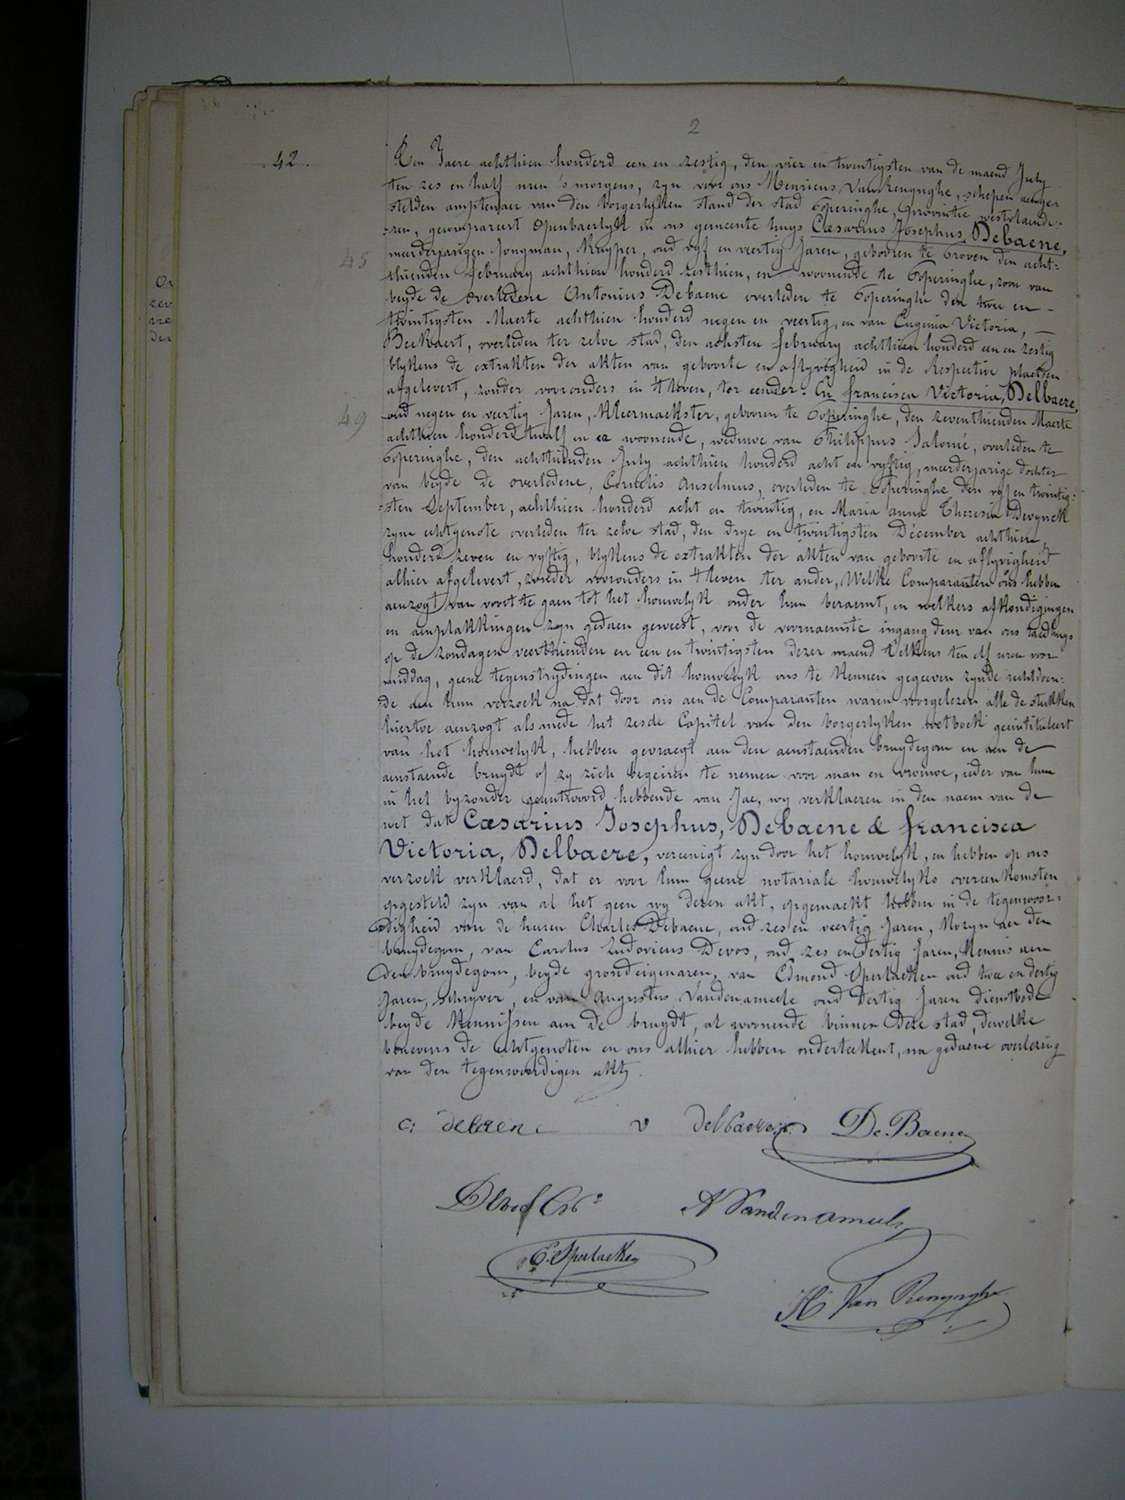 2
42.
Een Jaere achthien honderd een en zestig, den vier en twintigsten van de maend July
ten zes en half uren 's morgens, zyn voor ons Henricus Van Renynghe, schepen aenge-
stelden amptenaer van den borgerlyken stand der stad Poperinghe, provintie westvlaende-
ren, gecompareert openbaerlyk in ons gemeente huys Cæsarius Josephus, Debaene,
meerderjarigen jongman, Kuyper, oud vyf en veertig Jaren, gebooren te Proven den acht-
45
thienden february achthien honderd zesthien, en woonende te Poperinghe, zoon van
beyde de overledene Antonius Debaene overleden te Poperinghe den twee en
twintigsten Maerte achthien honderd negen en veertig, en van Eugenia Victoria,
Beekaert, overleden ter zelve stad, den achsten february achthien honderd een en zestig
blykens de extrakten der akten van geboorte en aflyvigheid in de respective plaetsen
afgelevert, zonder voorouders in 't leven, ter eender. En francisca Victoria, Delbaere,
oud negen en veertig Jaren, Kleermaekster, gebooren te Poperinghe, den zeventhienden Maerte
49
achthien honderd twalf en er woonende, weduwe van Philippus Salomé, overleden te
Poperinghe, den achthienden July achthien honderd acht en vyftig, meerderjarige dochter
van beyde de overledene, Cornelis Anselmus, overleden te Poperinghe den vyf en twintig-
sten September, achthien honderd acht en twintig, en Maria anna Theresia Devynck
zyne echtgenote overleden ter zelve stad, den drye en twintigsten Décember achthien
honderd zeven en vyftig, blykens de extrakten der akten van geboorte en aflyvigheid
alhier afgelevert, zonder voorouders in 't leven ter ander, Welke Comparanten ons hebben
aenzogt van voort te gaen tot het houwelyk onder hun beraemt, en welkers afkondigingen
en aenplakkingen zyn gedaen geweest, voor de voornaemste ingang deur van ons raedhuys
op de zondagen veerthienden en een en twintigsten dezer maend telkens ten elf uren voor
middag, geene tegenstrydingen aen dit houwelyk ons te kennen gegeven zynde rechtdoen-
de aen hun verzoek na dat door ons aen de Comparanten waren voorgelezen alle de stukken
hiertoe aenzogt alsmede het zesde Capitel van den borgerlyken wetboek geïntituleert
van het houwelyk, hebben gevraegt aen den aenstaenden bruydegom en aen de
aenstaende bruydt of zy zich begeiren te nemen voor man en vrouwe, ieder van hun
in het byzonder geantwoord hebbende van Jae, wy verklaeren in den naem van de
wet dat Cæsarius Josephus, Debaene & francisca
Victoria, Delbaere, vereenigt zyn door het houwelyk, en hebben op ons
verzoek verklaerd, dat er voor hun geene notariale houwelyks overeenkomsten
opgesteld zyn van al het geen wy dezen akt, opgemaekt hebben in de tegenwoor-
digheid van de heeren Charles Debaene, oud zes en veertig Jaren, Kozyn aen den
bruydegom, van Carolus Ludovicus Devos, oud zes en dertig Jaren, Kennis aen
den bruydegom, beyde grondeigenaren, van Edmond Sperlaeken oud twee en dertig
Jaren, schryver, en van Augustus Vandenameele oud dertig Jaren dienstbode
beyde Kennissen aen de bruydt, al woonende binnen deze stad, dewelke
benevens de echtgenoten en ons alhier hebben onderteekent, na gedaene overlezing
van den tegenwoordigen akt.
C: debaene v delbaere De Baene
A Vandenameele
E. Sperlaeken
H. Van Renynghe